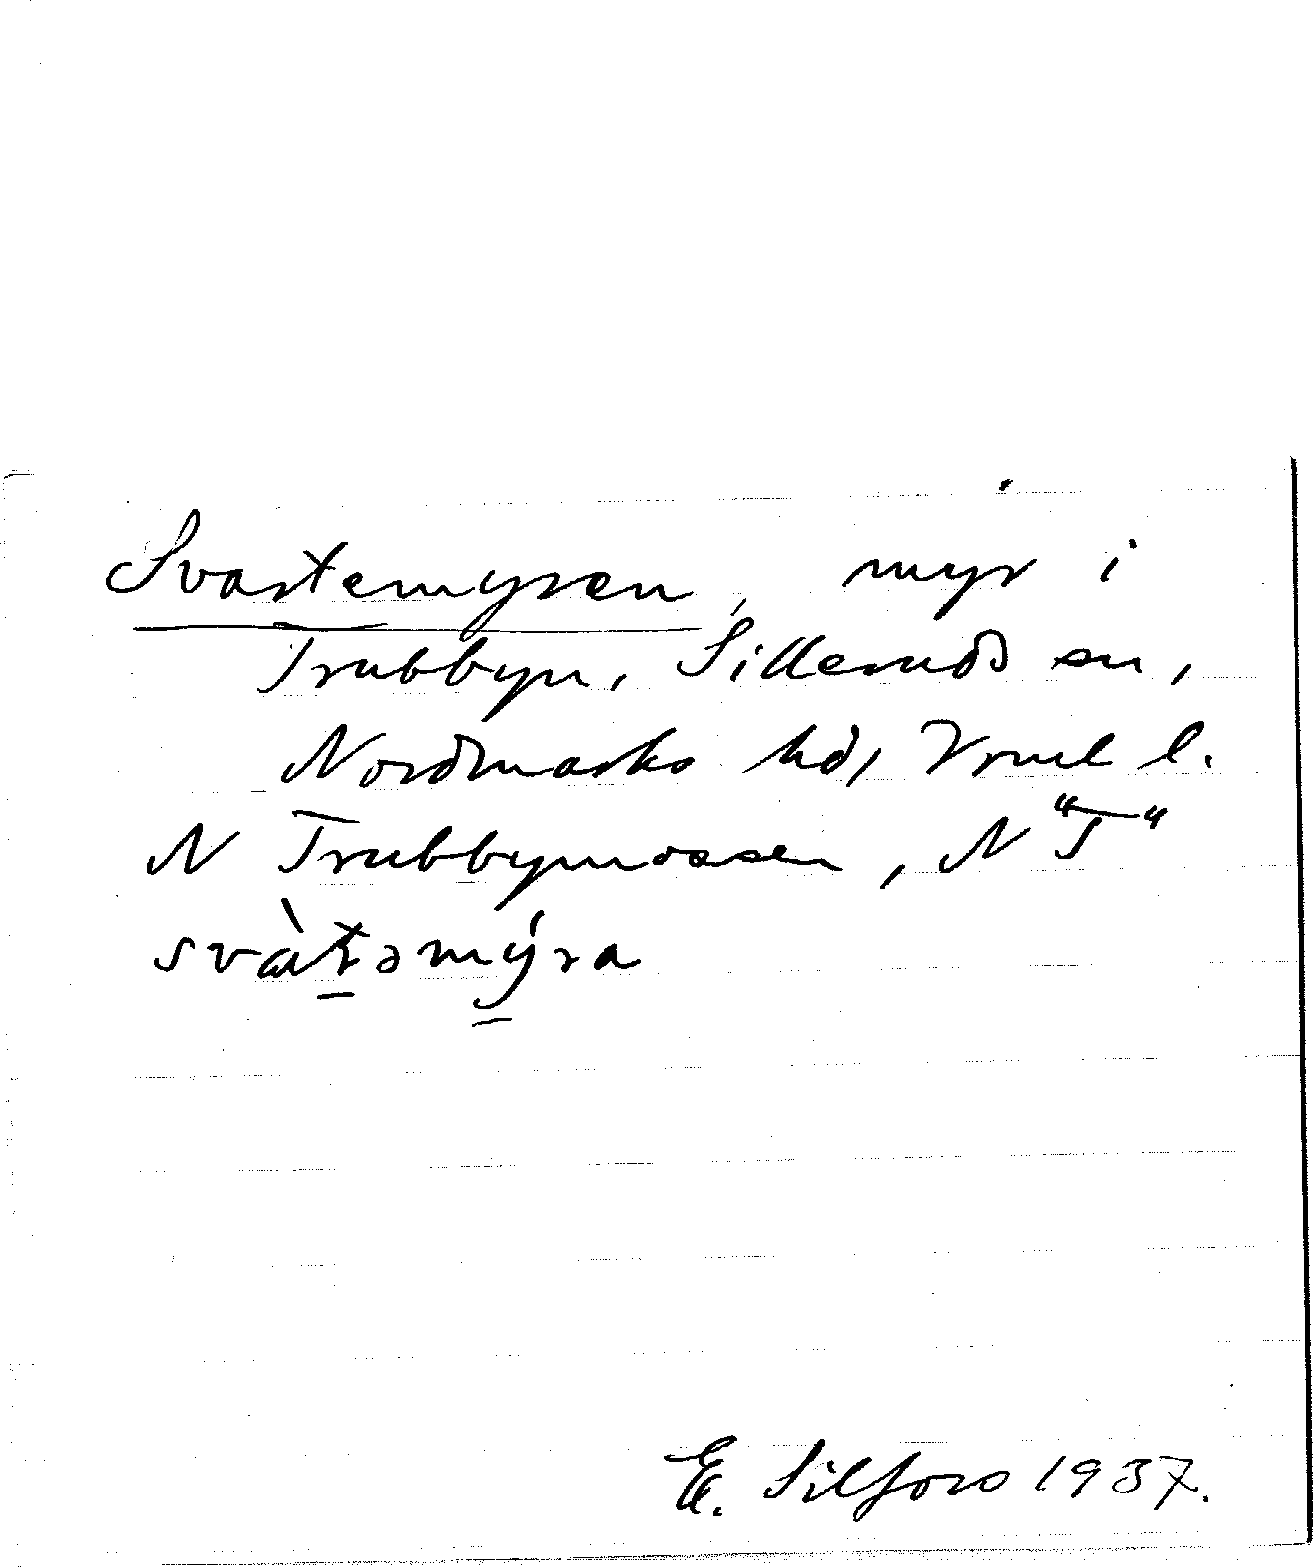 Svartemyren, myr i
Trubbyn, Silleruds sn,
Nordmarks hd, Vrml l.
N Trubbymossen, N "T"
svàtəmýra
E. Silfors 1937.